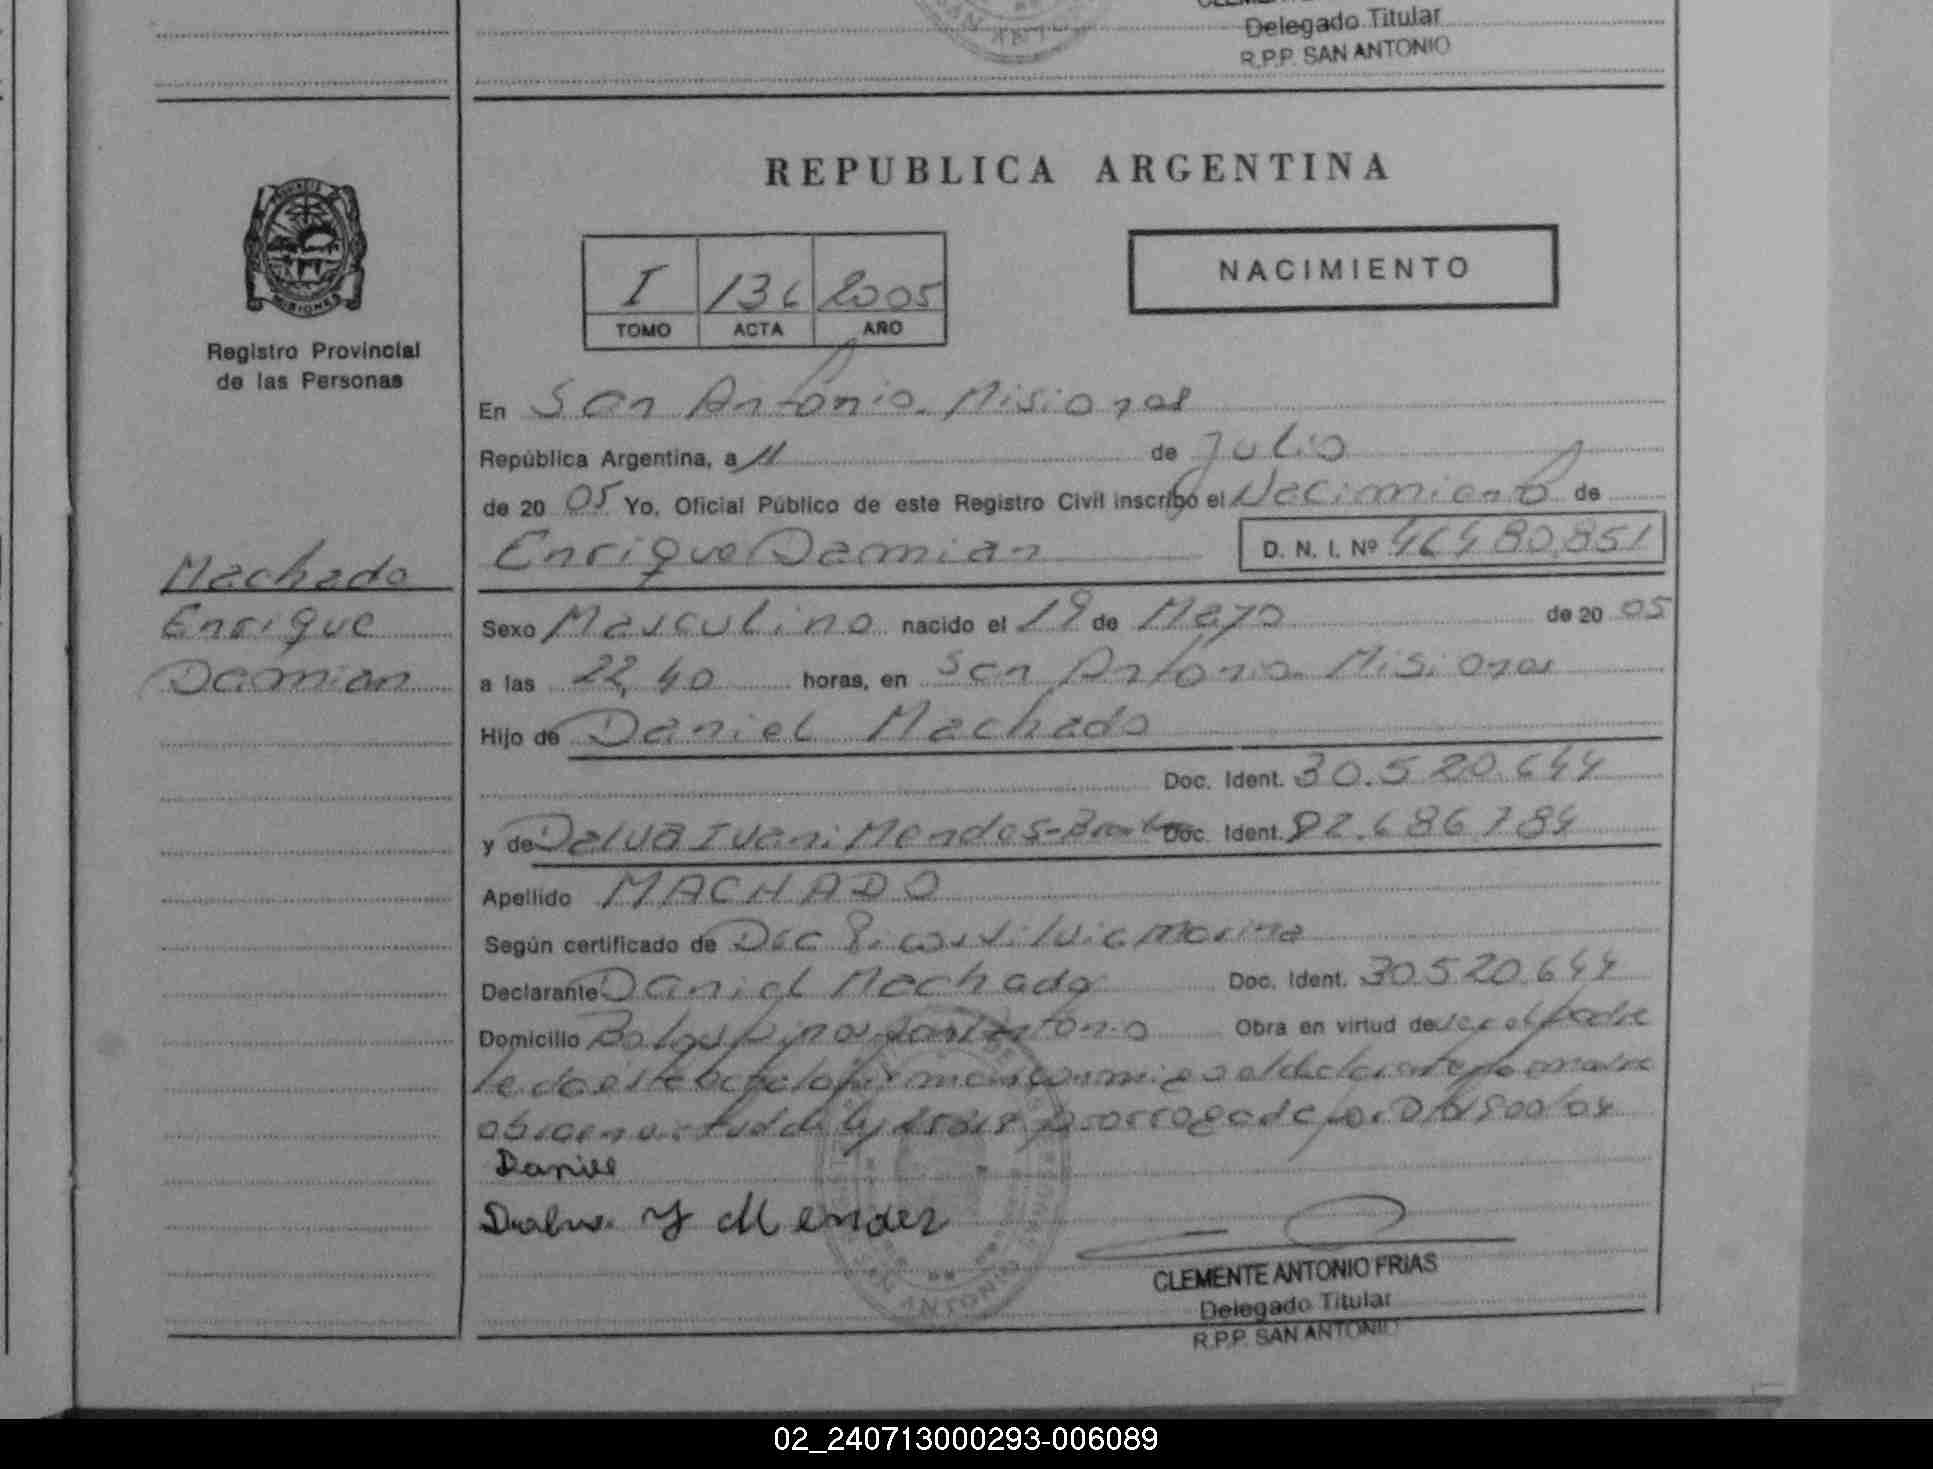 Delegado Titular
R.P.P. SAN ANTONIO
REPUBLICA ARGENTINA
NACIMIENTO
I 136 2005
TOMO ACTA AÑO
MISIONES
Registro Provincial
de las Personas
En San Antonio. Misiones
República Argentina, a 11 de Julio
de 20 05 Yo, Oficial Público de este Registro Civil inscribo el Nacimiento de
Enrique Damian D. N. I. Nº 46480.851
Machado
Enrique
Damian
Sexo Masculino nacido el 19 de Mayo de 20 05
a las 22,40 horas, en San Antonio. Misiones
Hijo de Daniel Machado
Doc. Ident. 30.520.644
y de Dalva Ivani Mendes- Doc. Ident. 92.686.784
Apellido MACHADO
Según certificado de
Declarante Daniel Machado Doc. Ident. 30.520.644
Domicilio San Antonio Obra en virtud de ser el padre
prorrogada por
Daniel
Dalva Y Mendez
SAN ANTONIO
CLEMENTE ANTONIO FRIAS
Delegado Titular
R.P.P. SAN ANTONIO
02_240713000293-006089